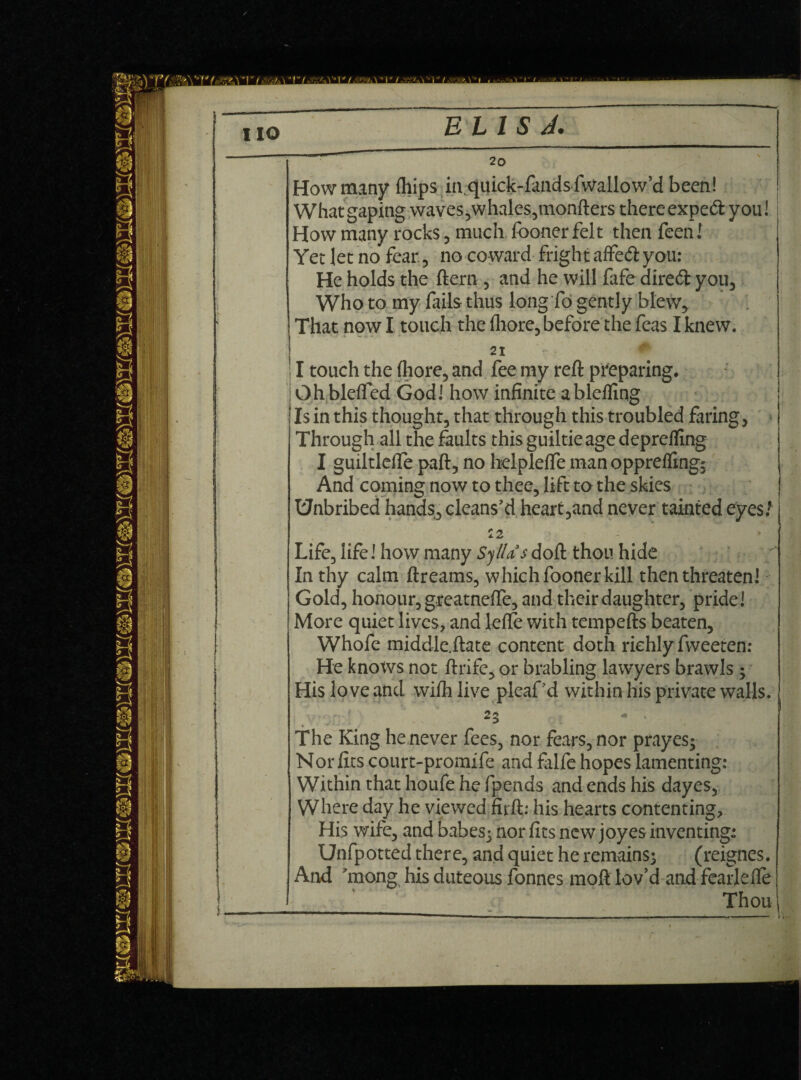 110 ELISA.
20
How many ſhips in quick-ſands ſwallow’d been!
What gaping waves, whales, monſters there expect you!
How many rocks, much ſooner felt then ſeen!
Yet let no fear, no coward fright affect you:
He holds the ſtern, and he will ſafe direct you,
Who to my ſails thus long ſo gently blew,
That now I touch the ſhore, before the ſeas I knew.
21
I touch the ſhore, and ſee my reſt preparing.
Oh bleſſed God! how infinite a bleſſing
Is in this thought, that through this troubled faring,
Through all the faults this guiltie age depreſſing
I guiltleſſe paſt, no helpleſſe man oppreſſing;
And coming now to thee, lift to the skies
Unbribed hands, cleans’d heart, and never tainted eyes!
22
Life, life! how many Sylla’s doſt thou hide
In thy calm ſtreams, which ſooner kill then threaten!
Gold, honour, greatneſſe, and their daughter, pride!
More quiet lives, and leſſe with tempeſts beaten,
Whoſe middle ſtate content doth richly ſweeten:
He knows not ſtrife, or brabling lawyers brawls;
His love and wiſh live pleaſ’d within his private walls.
23
The King he never ſees, nor fears, nor prayes;
Nor ſits court-promiſe and falſe hopes lamenting:
Within that houſe he ſpends and ends his dayes,
Where day he viewed firſt: his hearts contenting,
His wife, and babes; nor ſits new joyes inventing:
Unſpotted there, and quiet he remains; (reignes.
And ’mong his duteous ſonnes moſt lov’d and fearleſſe
Thou